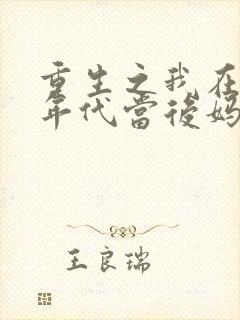 重生之我在
年代當後媽
王良瑞